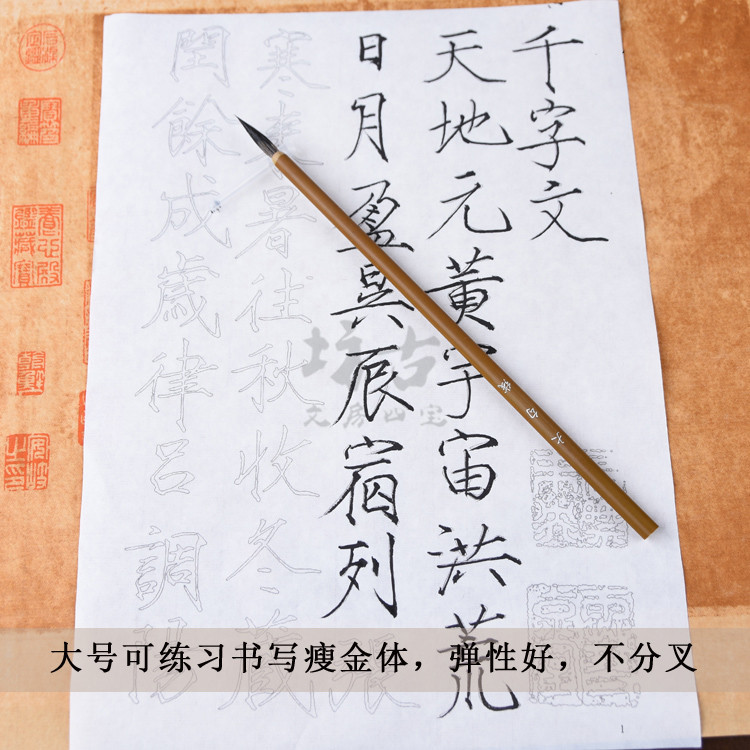 千字文
天地元黃宇宙洪荒
日月盈昃辰宿列張
寒來暑往秋收冬藏
閏餘成歲律呂調陽
1
大号可练习书写瘦金体，弹性好，不分叉